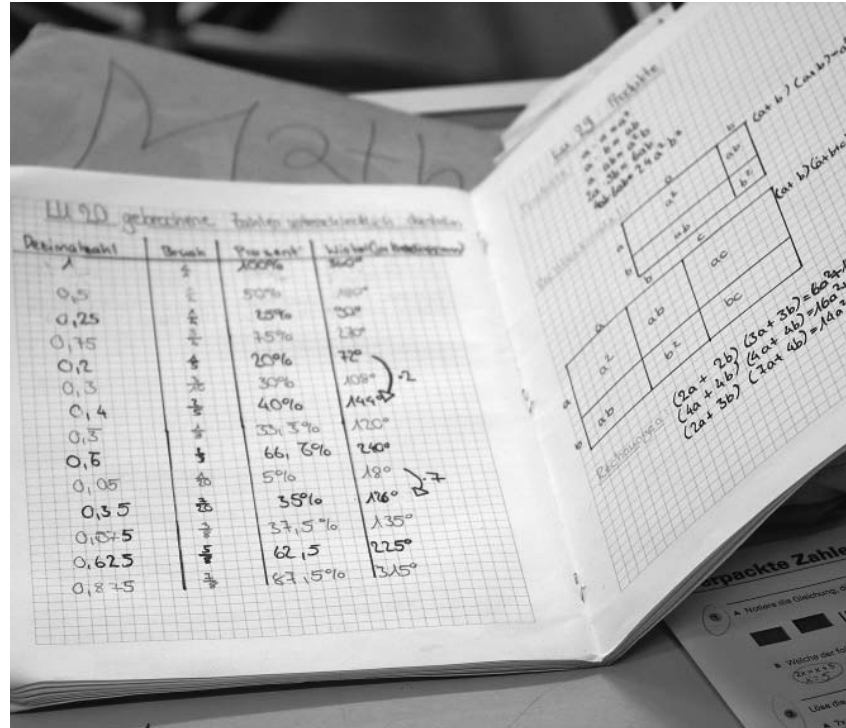 Math
LU 20 gebrochene Zahlen unterschiedlich darstellen
Dezimalzahl Bruch Prozent Winkel (im Kreisdiagramm)
1 100% 360°
0,5 50% 180°
0,25 25% 90°
0,75 75% 270°
0,2 20% 72°
0,3 30% 108° ·2
0,4 40% 144°
0,3̅ 33,3̅% 120°
0,6̅ 66,6̅% 240°
0,05 5% 18°
0,35 35% 126° ·7
0,375 37,5% 135°
0,625 62,5 225°
0,875 87,5% 315°
LU 29 Produkte
Produkte: a · a = a²
a · b = ab
a · ab = a²b
2a · 3b = 6ab
(a + b) (a + b) = a
a b
a a² ab
b ab b²
(a + b) (a + b + c)
a b c
a a² ab ac
b ab b² bc
Rechnungen:
(2a + 2b) (3a + 3b) = 6a² +
(4a + 4b) (4a + 4b) = 16a² +
(2a + 3b) (7a + 4b) = 14a²
rpackte Zahle
A Notiere die Gleichung, d
B Welche der fol
2x = x + 5
x = 5
Löse die